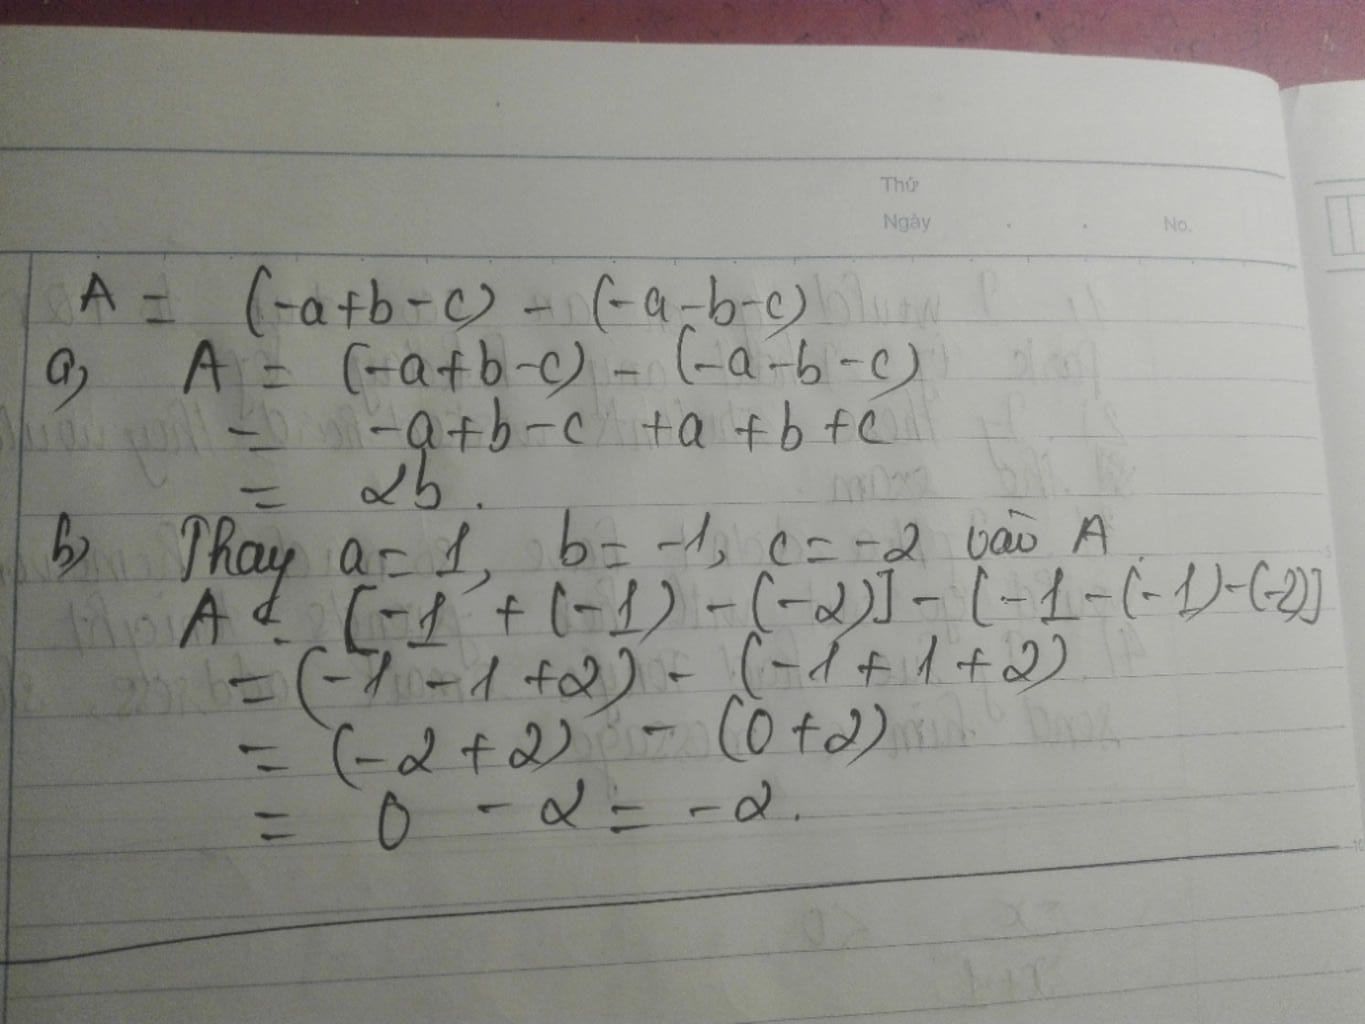 Thứ
Ngày . . No.
A = (-a+b-c) - (-a-b-c)
a, A = (-a+b-c) - (-a-b-c)
= -a+b-c +a +b +c
= 2b.
b, Thay a=1, b= -1, c=-2 vào A
A = [-1 + (-1) - (-2)] - [-1-(-1)-(-2)]
= (-1 -1 +2) - (-1 + 1 +2)
= (-2 +2) - (0+2)
= 0 - 2 = -2.